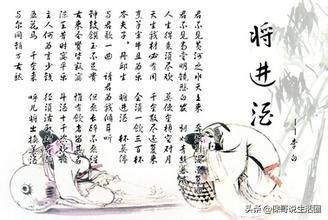 将进酒
—李白
君不见黄河之水天上来
君不见高堂明镜悲白发
人生得意须尽欢 莫使空樽对月
天生我材必有用 千金散尽还复来
烹羊宰牛且为乐 会须一饮三百杯
岑夫子 丹丘生 将进酒 杯莫停
与君歌一曲 请君为我倾耳听
钟鼓馔玉不足贵 但愿长醉不愿
古来圣贤皆寂寞 惟有饮者留其
陈王昔时宴平乐 斗酒十千恣
主人何为言少钱 径须沽取对
五花马 千金裘 呼儿将出换美酒
与尔同销万古愁
头条 @保哥说生活圈